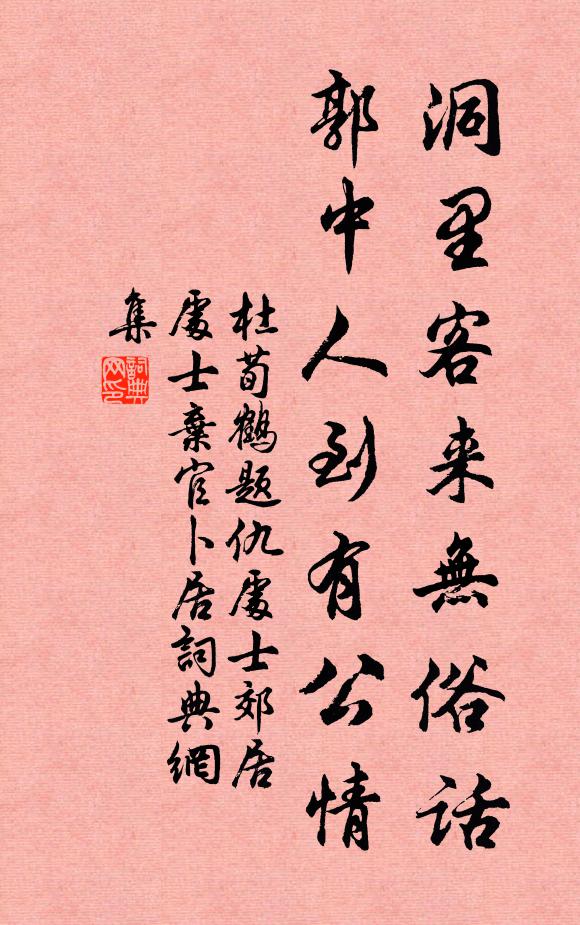 洞里客来無俗話
郭中人到有公情
杜荀鶴题仇處士郊居
處士棄官卜居詞典網
集
詞典
网印